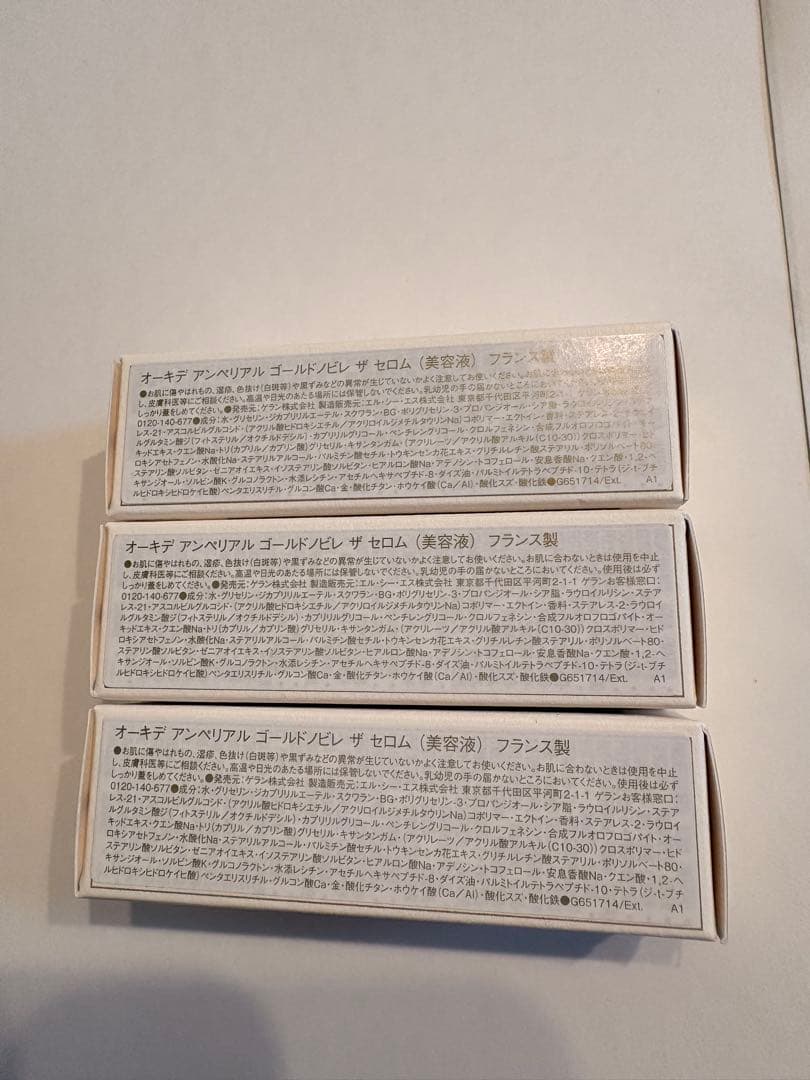 オーキデ アンペリアル ゴールドノビレ ザ セロム（美容液） フランス製
●お肌に傷やはれもの、湿疹、色抜け（白斑等）や黒ずみなどの異常が生じていないかよく注意してお使いください。お肌に合わないときは使用を中止
し、皮膚科医等にご相談ください。高温や日光のあたる場所には保管しないでください。乳幼児の手の届かないところにおいてください。使用後は必ず
しっかり蓋をしめてください。●発売元：ゲラン株式会社 製造販売元：エル・シー・エス株式会社 東京都千代田区平河町2-1
0120-140-677●成分：水・グリセリン・ジカプリリルエーテル・スクワラン・BG・ポリグリセリン-3・プロパンジオール・シア脂・ラウロイル
レス-21・アスコルビルグルコシド・（アクリル酸ヒドロキシエチル／アクリロイルジメチルタウリンNa）コポリマー・エクトイン・香料・ステアレス-2・ラウロイ
ルグルタミン酸ジ（フィトステリル／オクチルドデシル）・カプリリルグリコール・ペンチレングリコール・クロルフェネシン・合成フルオロフロゴパイト・オー
キッドエキス・クエン酸Na・トリ（カプリル／カプリン酸）グリセリル・キサンタンガム・（アクリレーツ／アクリル酸アルキル（C10-30））クロスポリマー・ヒド
ロキシアセトフェノン・水酸化Na・ステアリルアルコール・パルミチン酸セチル・トウキンセンカ花エキス・グリチルレチン酸ステアリル・ポリソルベート80・
ステアリン酸ソルビタン・ゼニアオイエキス・イソステアリン酸ソルビタン・ヒアルロン酸Na・アデノシン・トコフェロール・安息香酸Na・クエン酸・1,2-ヘ
キサンジオール・ソルビン酸K・グルコノラクトン・水添レシチン・アセチルヘキサペプチド-8・ダイズ油・パルミトイルテトラペプチド-10・テトラ（ジ-t-ブチ
ルヒドロキシヒドロケイヒ酸）ペンタエリスリチル・グルコン酸Ca・金・酸化チタン・ホウケイ酸（Ca／Al）・酸化スズ・酸化鉄●G651714/Ext. A1
オーキデ アンペリアル ゴールドノビレ ザ セロム（美容液） フランス製
●お肌に傷やはれもの、湿疹、色抜け（白斑等）や黒ずみなどの異常が生じていないかよく注意してお使いください。お肌に合わないときは使用を中止
し、皮膚科医等にご相談ください。高温や日光のあたる場所には保管しないでください。乳幼児の手の届かないところにおいてください。使用後は必ず
しっかり蓋をしめてください。●発売元：ゲラン株式会社 製造販売元：エル・シー・エス株式会社 東京都千代田区平河町2-1-1 ゲランお客様窓口：
0120-140-677●成分：水・グリセリン・ジカプリリルエーテル・スクワラン・BG・ポリグリセリン-3・プロパンジオール・シア脂・ラウロイルリシン・ステア
レス-21・アスコルビルグルコシド・（アクリル酸ヒドロキシエチル／アクリロイルジメチルタウリンNa）コポリマー・エクトイン・香料・ステアレス-2・ラウロイ
ルグルタミン酸ジ（フィトステリル／オクチルドデシル）・カプリリルグリコール・ペンチレングリコール・クロルフェネシン・合成フルオロフロゴパイト・オー
キッドエキス・クエン酸Na・トリ（カプリル／カプリン酸）グリセリル・キサンタンガム・（アクリレーツ／アクリル酸アルキル（C10-30））クロスポリマー・ヒド
ロキシアセトフェノン・水酸化Na・ステアリルアルコール・パルミチン酸セチル・トウキンセンカ花エキス・グリチルレチン酸ステアリル・ポリソルベート80・
ステアリン酸ソルビタン・ゼニアオイエキス・イソステアリン酸ソルビタン・ヒアルロン酸Na・アデノシン・トコフェロール・安息香酸Na・クエン酸・1,2-ヘ
キサンジオール・ソルビン酸K・グルコノラクトン・水添レシチン・アセチルヘキサペプチド-8・ダイズ油・パルミトイルテトラペプチド-10・テトラ（ジ-t-ブチ
ルヒドロキシヒドロケイヒ酸）ペンタエリスリチル・グルコン酸Ca・金・酸化チタン・ホウケイ酸（Ca／Al）・酸化スズ・酸化鉄●G651714/Ext. A1
オーキデ アンペリアル ゴールドノビレ ザ セロム（美容液） フランス製
●お肌に傷やはれもの、湿疹、色抜け（白斑等）や黒ずみなどの異常が生じていないかよく注意してお使いください。お肌に合わないときは使用を中止
し、皮膚科医等にご相談ください。高温や日光のあたる場所には保管しないでください。乳幼児の手の届かないところにおいてください。使用後は必ず
しっかり蓋をしめてください。●発売元：ゲラン株式会社 製造販売元：エル・シー・エス株式会社 東京都千代田区平河町2-1-1 ゲランお客様窓口：
0120-140-677●成分：水・グリセリン・ジカプリリルエーテル・スクワラン・BG・ポリグリセリン-3・プロパンジオール・シア脂・ラウロイルリシン・ステア
レス-21・アスコルビルグルコシド・（アクリル酸ヒドロキシエチル／アクリロイルジメチルタウリンNa）コポリマー・エクトイン・香料・ステアレス-2・ラウロイ
ルグルタミン酸ジ（フィトステリル／オクチルドデシル）・カプリリルグリコール・ペンチレングリコール・クロルフェネシン・合成フルオロフロゴパイト・オー
キッドエキス・クエン酸Na・トリ（カプリル／カプリン酸）グリセリル・キサンタンガム・（アクリレーツ／アクリル酸アルキル（C10-30））クロスポリマー・ヒド
ロキシアセトフェノン・水酸化Na・ステアリルアルコール・パルミチン酸セチル・トウキンセンカ花エキス・グリチルレチン酸ステアリル・ポリソルベート80・
ステアリン酸ソルビタン・ゼニアオイエキス・イソステアリン酸ソルビタン・ヒアルロン酸Na・アデノシン・トコフェロール・安息香酸Na・クエン酸・1,2-ヘ
キサンジオール・ソルビン酸K・グルコノラクトン・水添レシチン・アセチルヘキサペプチド-8・ダイズ油・パルミトイルテトラペプチド-10・テトラ（ジ-t-ブチ
ルヒドロキシヒドロケイヒ酸）ペンタエリスリチル・グルコン酸Ca・金・酸化チタン・ホウケイ酸（Ca／Al）・酸化スズ・酸化鉄●G651714/Ext. A1